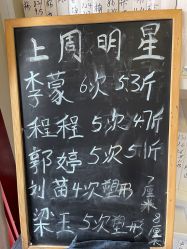 上周明星
李蒙 6次 5.3斤
程程 5次 4.7斤
郭婷 5次 5.1斤
刘苗 4次塑形 7厘米
梁玉 5次塑形 8厘米